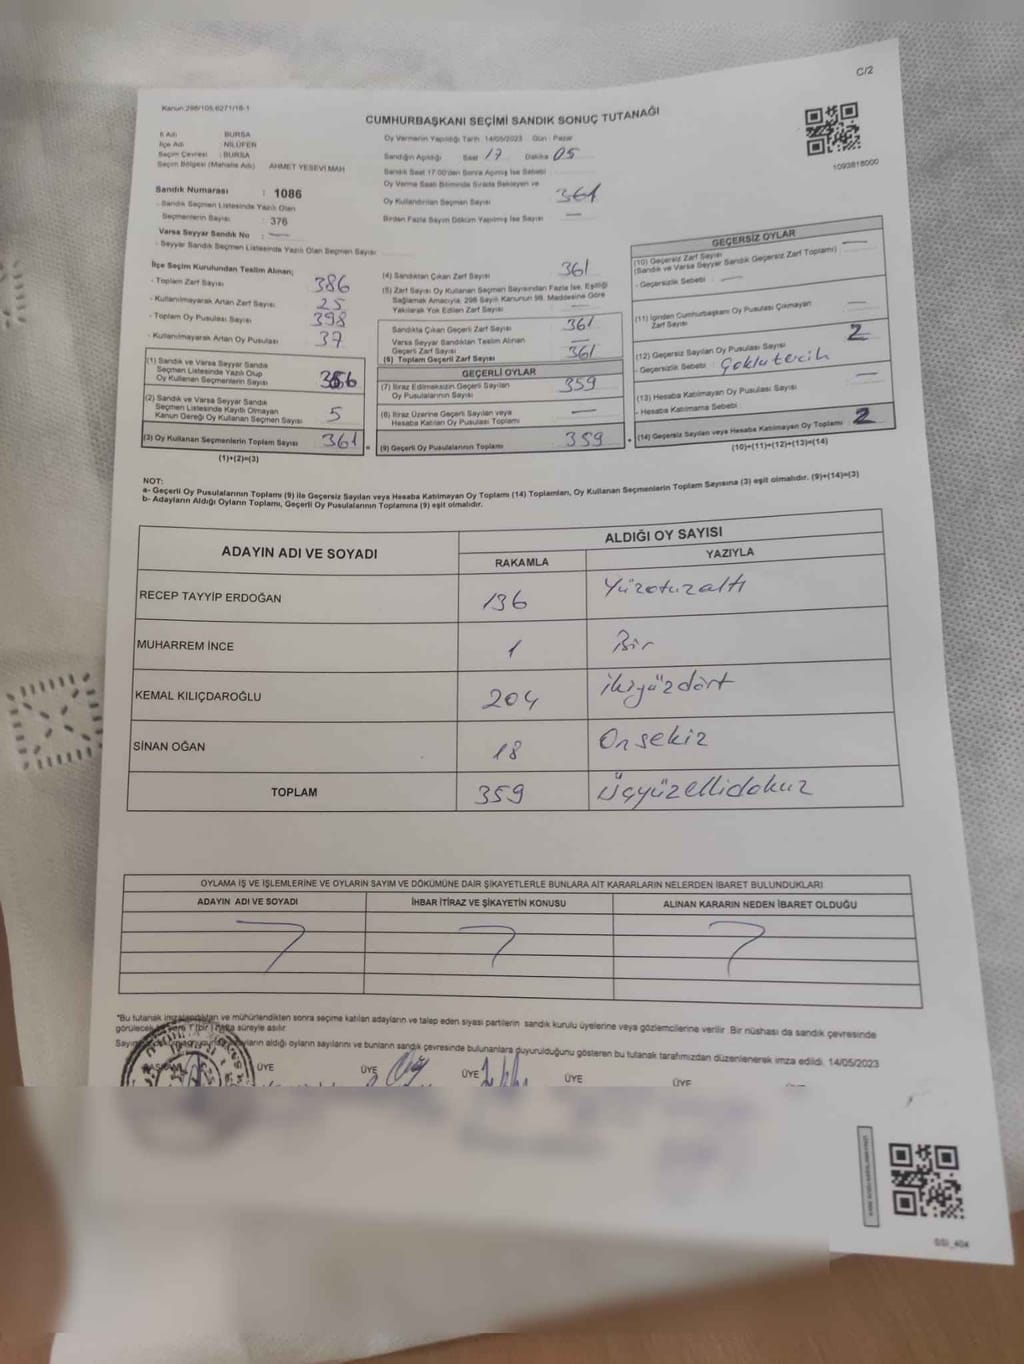 C/2
Kanun:298/105,6271/18-1
CUMHURBAŞKANI SEÇİMİ SANDIK SONUÇ TUTANAĞI
İl Adı : BURSA
İlçe Adı : NİLÜFER
Seçim Çevresi : BURSA
Seçim Bölgesi (Mahalle Adı) : AHMET YESEVİ MAH
Sandık Numarası : 1086
- Sandık Seçmen Listesinde Yazılı Olan
Seçmenlerin Sayısı : 376
Varsa Seyyar Sandık No : —
- Seyyar Sandık Seçmen Listesinde Yazılı Olan Seçmen Sayısı :
Oy Vermenin Yapıldığı Tarih : 14/05/2023 Gün : Pazar
Sandığın Açıldığı Saat 17 Dakika 05
Sandık Saat 17.00'den Sonra Açılmış İse Sebebi
Oy Verme Saati Bitiminde Sırada Bekleyen ve
Oy Kullandırılan Seçmen Sayısı 361
Birden Fazla Sayım Döküm Yapılmış İse Sayısı —
1093818000
İlçe Seçim Kurulundan Teslim Alınan;
- Toplam Zarf Sayısı 386
- Kullanılmayarak Artan Zarf Sayısı 25
- Toplam Oy Pusulası Sayısı 398
- Kullanılmayarak Artan Oy Pusulası 37
(1) Sandık ve Varsa Seyyar Sandık
Seçmen Listesinde Yazılı Olup
Oy Kullanan Seçmenlerin Sayısı 356
(2) Sandık ve Varsa Seyyar Sandık
Seçmen Listesinde Kayıtlı Olmayan
Kanun Gereği Oy Kullanan Seçmen Sayısı 5
(3) Oy Kullanan Seçmenlerin Toplam Sayısı 361 =
(1)+(2)=(3)
(4) Sandıktan Çıkan Zarf Sayısı 361
(5) Zarf Sayısı Oy Kullanan Seçmen Sayısından Fazla İse, Eşitliği
Sağlamak Amacıyla, 298 Sayılı Kanunun 98. Maddesine Göre
Yakılarak Yok Edilen Zarf Sayısı
Sandıkta Çıkan Geçerli Zarf Sayısı 361
Varsa Seyyar Sandıktan Teslim Alınan
Geçerli Zarf Sayısı —
(6) Toplam Geçerli Zarf Sayısı 361
GEÇERLİ OYLAR
(7) İtiraz Edilmeksizin Geçerli Sayılan
Oy Pusulalarının Sayısı 359
(8) İtiraz Üzerine Geçerli Sayılan veya
Hesaba Katılan Oy Pusulası Toplamı —
(9) Geçerli Oy Pusulalarının Toplamı 359 +
GEÇERSİZ OYLAR
(10) Geçersiz Zarf Sayısı
(Sandık ve Varsa Seyyar Sandık Geçersiz Zarf Toplamı) —
- Geçersizlik Sebebi : —
(11) İçinden Cumhurbaşkanı Oy Pusulası Çıkmayan
Zarf Sayısı —
(12) Geçersiz Sayılan Oy Pusulası Sayısı 2
- Geçersizlik Sebebi : Çoklu tercih
(13) Hesaba Katılmayan Oy Pusulası Sayısı —
- Hesaba Katılmama Sebebi
(14) Geçersiz Sayılan veya Hesaba Katılmayan Oy Toplamı 2
(10)+(11)+(12)+(13)=(14)
NOT:
a- Geçerli Oy Pusulalarının Toplamı (9) ile Geçersiz Sayılan veya Hesaba Katılmayan Oy Toplamı (14) Toplamları, Oy Kullanan Seçmenlerin Toplam Sayısına (3) eşit olmalıdır. (9)+(14)=(3)
b- Adayların Aldığı Oyların Toplamı, Geçerli Oy Pusulalarının Toplamına (9) eşit olmalıdır.
ADAYIN ADI VE SOYADI
ALDIĞI OY SAYISI
RAKAMLA YAZIYLA
RECEP TAYYİP ERDOĞAN 136 Yüzotuzaltı
MUHARREM İNCE 1 Bir
KEMAL KILIÇDAROĞLU 204 İkiyüzdört
SİNAN OĞAN 18 Onsekiz
TOPLAM 359 Üçyüzellidokuz
OYLAMA İŞ VE İŞLEMLERİNE VE OYLARIN SAYIM VE DÖKÜMÜNE DAİR ŞİKAYETLERLE BUNLARA AİT KARARLARIN NELERDEN İBARET BULUNDUKLARI
ADAYIN ADI VE SOYADI İHBAR İTİRAZ VE ŞİKAYETİN KONUSU ALINAN KARARIN NEDEN İBARET OLDUĞU
*Bu tutanak imzalandıktan ve mühürlendikten sonra seçime katılan adayların ve talep eden siyasi partilerin sandık kurulu üyelerine veya gözlemcilerine verilir. Bir nüshası da sandık çevresinde
görülecek bir yere 1 (bir) hafta süreyle asılır.
adayların aldığı oyların sayılarını ve bunların sandık çevresinde bulunanlara duyurulduğunu gösteren bu tutanak tarafımızdan düzenlenerek imza edildi. 14/05/2023
BAŞKAN ÜYE ÜYE ÜYE ÜYE ÜYE